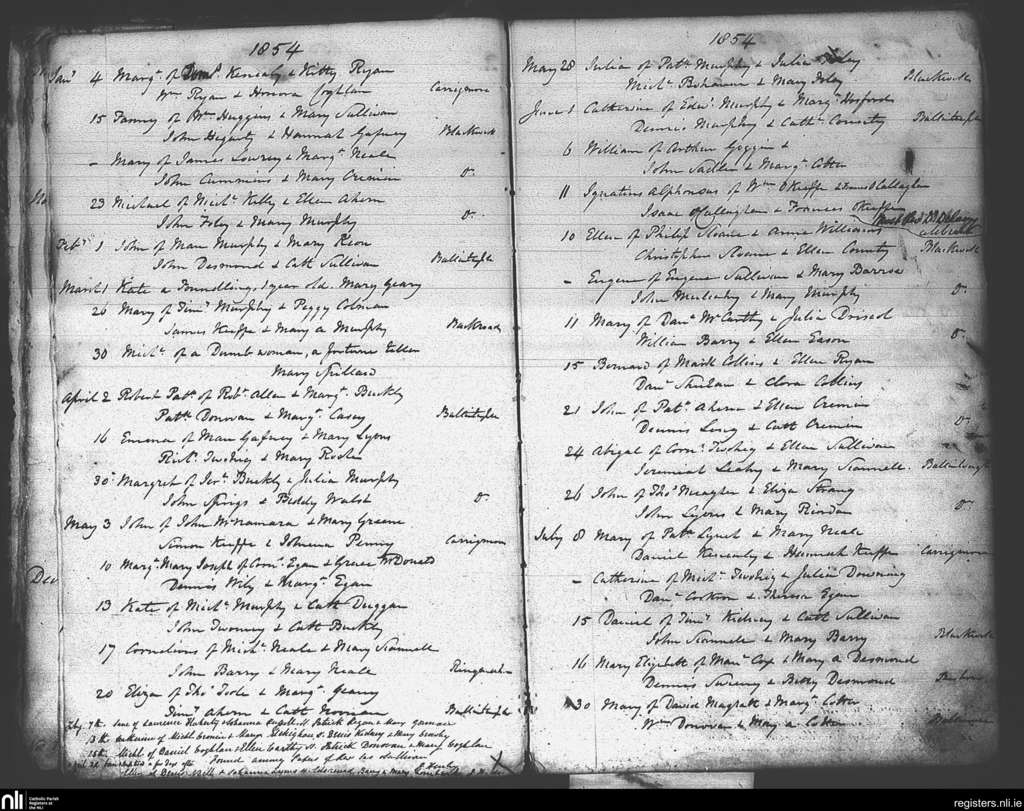 1854
Jany 4 Margt of Kenealy & Kitty Ryan
Wm Ryan & Honora Coghlan Carrigmore
15 Fanny of Wm Huggins & Mary Sullivan
John Hegarty & Hannah Gafney Blackrock
- Mary of James Lowrey & Margt Neale
John Cummins & Mary Cremin Do
23 Michael of Michl Kelly & Ellen Ahern
John Foley & Mary Murphy Do
Feby 1 John of Maur Murphy & Mary Keon
John Desmond & Cath Sullivan Ballintemple
March 1 Kate a Foundling, 1 year old. Mary Geary
26 Mary of Timy Murphy & Peggy Colman
James Keeffe & Mary a Murphy Blackrock
30 Michl of a Dumb woman, a fortune teller
Mary Spillard
April 2 Robert Patk of Robt Allen & Margt Buckly
Patk Donovan & Margt Casey Ballintemple
16 of Maur Gafney & Mary Lyons
Richd Twohig & Mary Roche
30 Margret of Jerh Buckly & Julia Murphy
John Spriggs & Biddy Walsh Do
May 3 John of John McNamara & Mary Greene
Simon Keeffe & Johanna Penny Carrigmore
10 Margt Mary Joseph of Corns Egan & Grace McDonald
Dennis Wily & Margt Egan
13 Kate of Michl Murphy & Cath Duggan
John Twomey & Cath Buckly
17 Cornelious of Michl Neale & Mary Scannell
John Barry & Mary Neale
20 Eliza of Thos Toole & Margt Geany
Timy Ahern & Cath Noonan Ballintemple
7th Jane of Laurence Flaherty & Johanna Patrick Regan & Mary
13th Catherine of Michl Cremin & Denis Kidney & Mary
15th Michl of Daniel Coghlan & Ellen Carthy Patrick Donovan & Mary Coghlan
found among Papers of Sullivan
of Denis & Johanna Lyons Barry & Mary
1854
May 28 Julia of Patk Murphy & Julia Foley
Michl Bohanan & Mary Foley Blackrock
June 1 Catherine of Edwd Murphy & Margt Hosford
Dennis Murphy & Cath Ballintemple
6 William of Arthur Goggin &
John Sadler & Margt Cotter
11 Ignatius Alphonsus of Wm O'Keeffe & Frances O'Callaghan
Isaac O'Callaghan & Frances O'Keeffe
Most Revd Dr Delany celebrant
10 Ellen of Philip Sloane & Anne Williams
Christopher Sloane & Ellen Blackrock
- Eugene of Eugene Sullivan & Mary Barron
John Mulcahy & Mary Murphy Do
11 Mary of Danl McCarthy & Julia Driscol
William Barry & Ellen Eason Do
15 Bernard of Mark Collins & Ellen Ryan
Danl Sheehan & Clara Collins
21 John of Patk Ahern & Ellen Cremin
Dennis Long & Cath Cremin Do
24 Abigal of Corns Twohey & Ellen Sullivan
Jeremiah Leahy & Mary Scannell Ballintemple
26 John of Thos Meagher & Eliza Strang
John Lyons & Mary Riordan Do
July 8 Mary of Patk Lynch & Mary Neale
Daniel Kenealy & Hannah Keeffe Carrigmore
- Catherine of Michl Twohig & Julia Downing
Danl Corkran & Theresa Egan
15 Daniel of Timy Kidney & Cath Sullivan
John Scannell & Mary Barry Blackrock
16 Mary Elizabeth of Maur Cox & Mary a Desmond
Dennis Sweeny & Betty Desmond
30 Mary of David Magrath & Margt Cotter
Wm Donovan & Mary a Cotter
nli Catholic Parish
Registers at
the NLI
registers.nli.ie